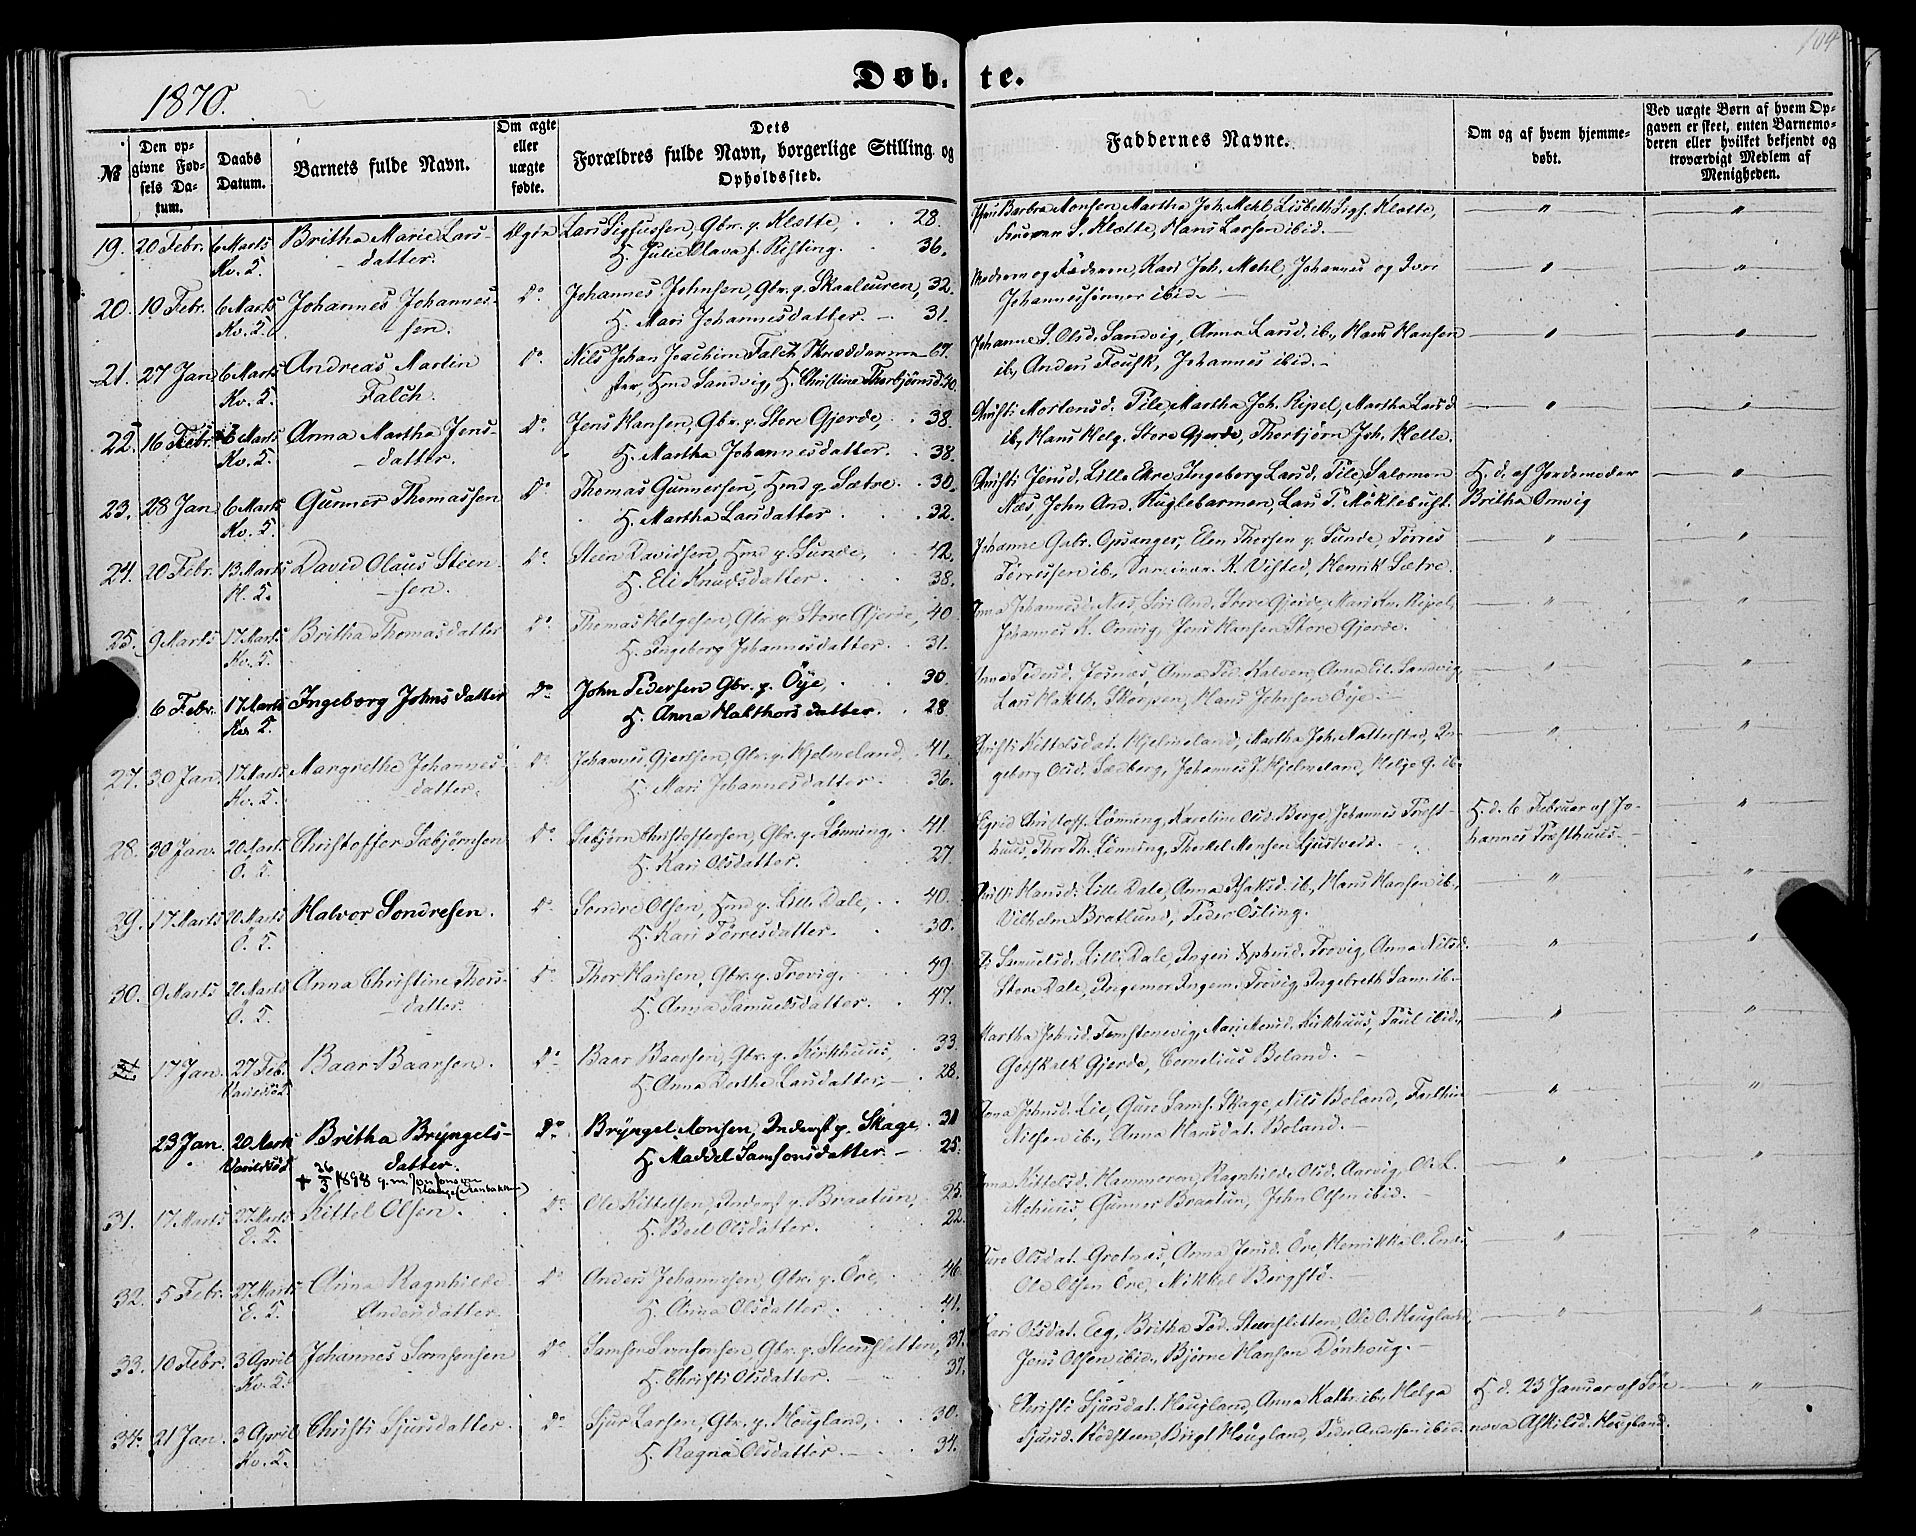 104
1870.
Døb. te.
№
Den op-
givne Fød-
sels Da-
tum.
Daabs
Datum.
Barnets fulde Navn.
Om ægte
eller
uægte
fødte.
Dets
Forældres fulde Navn, borgerlige Stilling og
Opholdssted.
Faddernes Navne.
Om og af hvem hjemme-
døbt.
Ved uægte Børn af hvem Op-
gaven er skeet, enten Barnemo-
deren eller hvilket bekjendt og
troværdigt Medlem af
Menigheden.
19. 20 Febr. 6 Marts Britha Marie Lars- Lars Sigfussen, Gbr. p. Klette, 28.
Kv. K. datter. H. Julie Olava f. Risting 36.
Barbra Monsen Martha Joh. Mehl, Lisbeth Sigf. Klette,
S. Klette, Hans Larsen ibid.
20. 10 Febr. 6 Marts Johannes Johannes- Do Johannes Johnsen, Gbr. p. Skaaleuren, 32.
Kv. K. sen. H. Mari Johannesdatter. 31.
Moderen og Faderen, Kari Joh. Mehl, Johannes og Iver
Johannessønner ibid.
21. 27 Jan 6 Marts Andreas Martin Do Nils Johan Joachim Falch Skræddermes- 67.
Kv. K. Falch. ter, Hmd Sandvig, H. Christine Thorbjørnsd. 40.
Johanne S. Olsd. Sandvig, Anna Larsd. ib., Hans Hansen
ib., Anders Fousk, Johannes ibid.
22. 16 Febr. 6 Marts Anna Martha Jens- Do Jens Hansen, Gbr. p. Store Gjerde, 38.
Kv. K. datter. H. Martha Johannesdatter. 38.
Christi Mortensd. Tile, Martha Joh. Ripel, Martha Larsd
ib., Hans Helg. Store Gjerde, Thorbjørn Joh. Helle.
23. 28 Jan 6 Marts Gunner Thomassen Do Thomas Gunnersen, Hmd p. Sætre. 30.
Kv. K. H. Martha Larsdatter 32.
Christi Jensd. Lille Ekre, Ingeborg Larsd. Tile, Salomon H. d. af Jordemoder
Næs, John And. Huglehammen, Lars T. Møklebust. Britha Omvig
24. 20 Febr. 13 Marts David Olaus Steen- Do Steen Davidsen, Hmd p. Sunde, 42.
H. K. sen. H. Eli Knudsdatter. 38.
Johanne Gabr. Opsanger, Elen Thorsen p. Sunde, Tørres
Tørressen ib., K. Visted, Henrik Sætre.
25. 9 Marts 17 Marts Britha Thomasdatter Do Thomas Helgesen, Gbr. p. Store Gjerde, 40
Kv. K. H. Ingeborg Johannesdatter. 31.
Anna Johannesd. Næs, Siri And. Store Gjerde, Mari Kn. Ripel,
Johannes K. Omvig, Jens Hansen Store Gjerde.
6 Febr. 17 Marts Ingeborg Johnsdatter Do John Pedersen Gbr. p. Öye, 30.
Kv. K. H. Anna Halthorsdatter. 28.
Anna Pedersd. Josnæs, Anna Ped. Kalven, Anna El. Sandvig,
Lars Halth. Skorpen, Hans Johnsen Öye.
27. 30 Jan. 17 Marts Margrethe Johannes- Do Johannes Gjertsen, Gbr. p. Hjelmeland, 41.
Kv. K. datter. H. Mari Johannesdatter. 36.
Christi Kittelsdat. Hjelmeland, Martha Joh. Natterstad, In-
geborg Olsd. Sæberg, Johannes J. Hjelmeland, Helge G. ib.
28. 30 Jan. 20 Marts Christoffer Sæbjørnsen Do Sæbjørn Christoffersen, Gbr. p. Lønning, 41.
Ö. K. H. Kari Olsdatter. 27.
Sigrid Christoff. Lønning, Karoline Olsd. Berge, Johannes Træst- H. d. 6 Februar af Jo-
huus, Thor Th. Lønning, Therkel Monsen Ljustvedt. hannes Træsthuus.
29. 17 Marts 20 Marts Halvor Sondresen. Do Sondre Olsen, Hmd p. Lille Dale, 40.
Ö. K. H. Kari Tørresdatter. 30.
Hansd. Lille Dale, Anna Isaksd. ib., Hans Hansen ib.,
Vilhelm Bratlund, Peder Ösling.
30. 9 Marts 20 Marts Anna Christine Thors- Do Thor Hansen, Gbr. p. Trovig, 49
Ö. K. datter. H. Anna Samuelsdatter. 47.
Samuelsd. Lille Dale, Ingeri Trovig, Anna Nilsd.
Store Dale, Ingemor Ingem. Trovig, Ingebreth Sam. ib.
17 Jan. 27 Feb. Baar Baarsen. Do Baar Baarsen, Gbr. p. Kirkhuus, 33.
Varaldsö K H. Anna Dorthe Larsdatter, 28.
Martha Johnsd. Femstenevig, Mari Monsd. Kirkhuus, Paul ibid.,
Gotskalk Gjerde, Cornelius Beland.
23 Jan. 20 Mark Britha Bryngels- Do Bryngel Monsen, Inderst p. Skage, 31
Varaldsö K datter. H. Maddel Samsonsdatter 25.
+ 26/3 1898 g. m. Jon Jonsen
Anna Johnsd. Lie, Guro Sams. Skage, Nils Beland,
Nilsen ib., Anna Hansdat. Beland.
31. 17 Marts 27 Marts Kittel Olsen. Do Ole Kittelsen, Inderst p. Braatun, 25.
E. K. H. Beil Olsdatter. 22.
Anna Kittelsd. Hammeren, Ragnhilde Olsd. Aarvig, Ole L.
Mehuus, Gunner Braatun, John Olsen ibid.
32. 5 Febr. 27 Marts Anna Ragnhilde Do Anders Johannesen, Gbr. p. Öre, 46.
E. K. Andersdatter. H. Anna Olsdatter. 41.
Guro Olsdat. Grotnæs, Anna Jensd. Öre, Henrikka C. Enæs,
Ole Olsen Öre, Mikkel Bergstö.
33. 10 Febr. 3 April Johannes Samsonsen Do Samson Samsonsen, Gbr. p. Steensletten, 37.
Kv. K. H. Christi Olsdatter. 37.
Kari Olsdat. Eeg, Britha Ped. Steensletten, Ole O. Hougland,
Jens Olsen ibid., Bjørne Hansen Dönhoug.
34. 21 Jan. 3 April Christi Sjursdatter. Do Sjur Larsen, Gbr. p. Hougland, 30.
Kv. K. H. Ragna Olsdatter. 34.
Christi Sjursdat. Hougland, Anna Kattr. ib., Helga H. d. 23 Januar af Søn-
Sjursd. Rödsteen, Birgt Hougland, Peder Andersen ibid. nova Askilsd. Hougland.